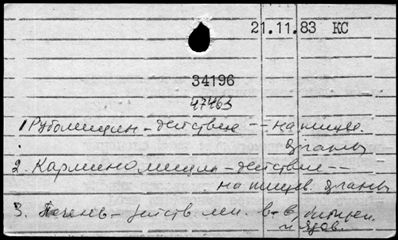 21.11.83 КС
34196
47463
1 Рубомицин – действие -- на пищев.
органы
2. Карминомицин – действие --
на пищев. органы
3. Печень – действ. в-в,
и здор.